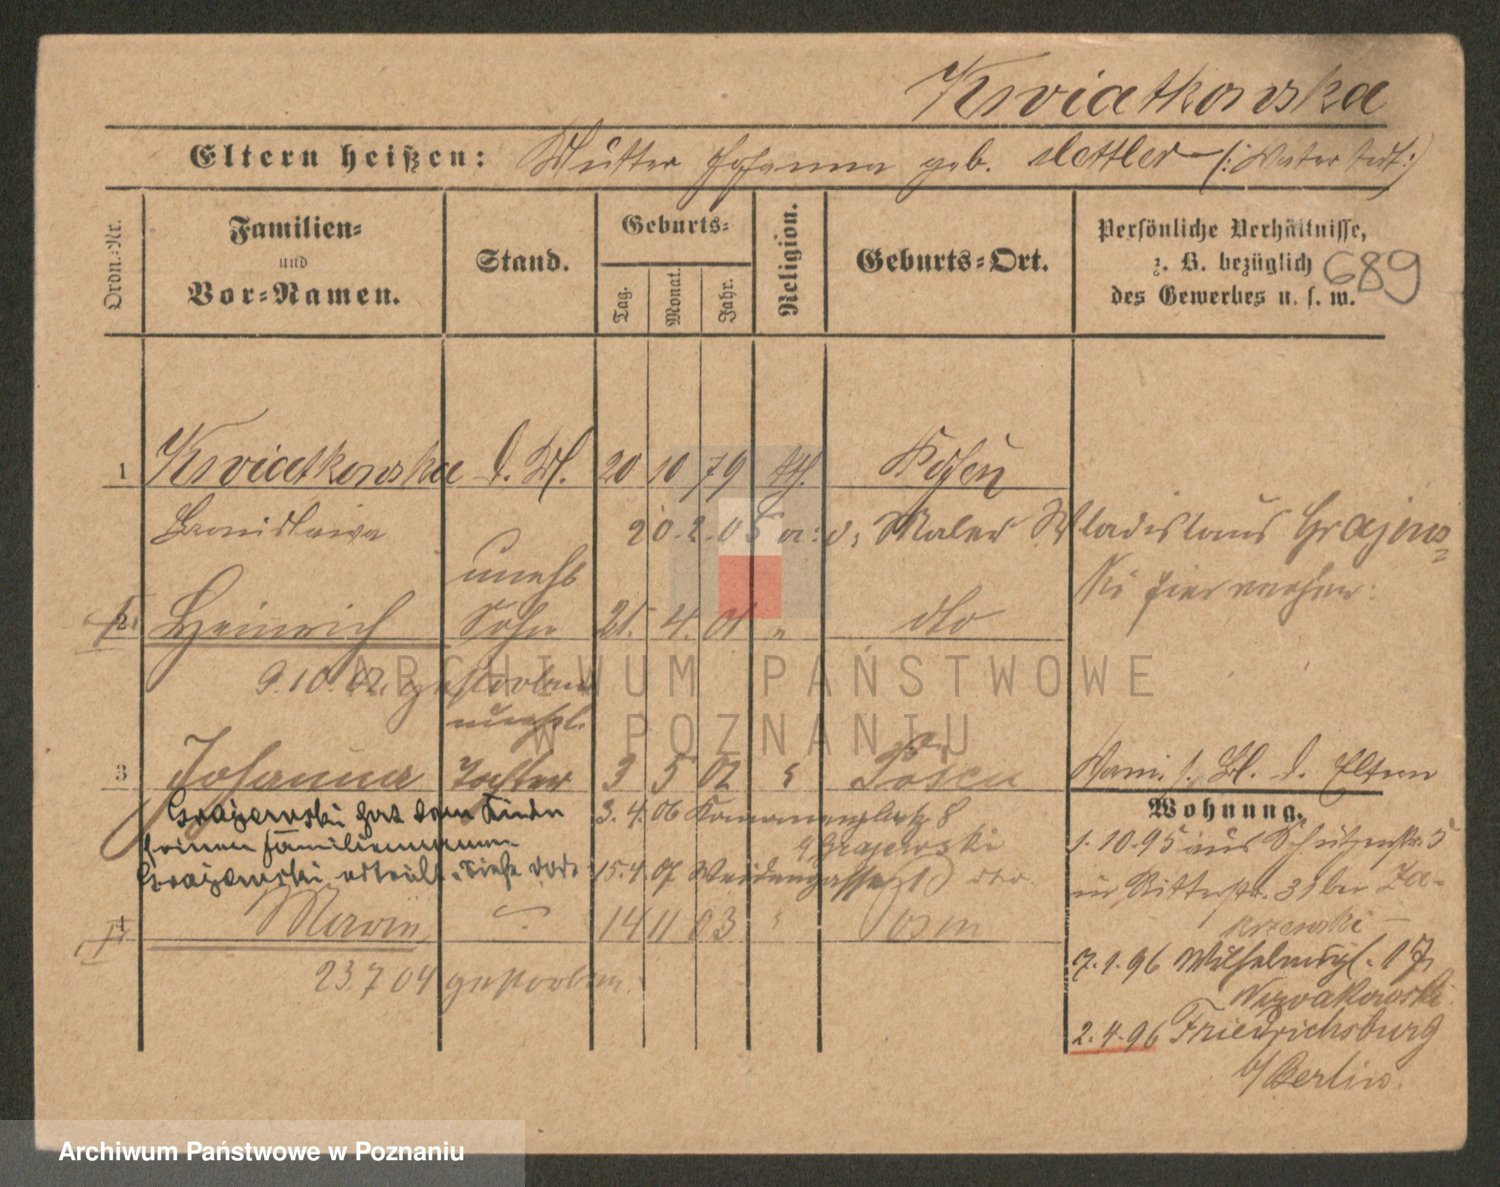 Kwiatkowska
Eltern heißen: Mutter Johanna geb. Mettler (: Vater todt :)
Ordn.-Nr.
Familien-
und
Vor-Namen.
Stand.
Geburts-
Tag. Monat. Jahr.
Religion.
Geburts-Ort.
Persönliche Verhältnisse,
z. B. bezüglich
des Gewerbes u. s. w.
689
1 Kwiatkowska d. M. 20 10 79 kth. Posen
Bronislawa 20.2.05 a: d: Maler Wladislaus Grajews=
ki hier
unehl
2 Heinrich Sohn 21. 4. 01 " dto
9.10.02. gestorben
unehl.
3 Johanna Tochter 3 5 02 " Posen
Wani. s. Bl. d. Eltern
Grajewski hat dem Kinde
seinen Familiennamen
Grajewski erteilt. Siehe dort
3.4.06 Kanonenplatz 8
b/ Grajewski
15.4.07 Weidengasse dto.
4 Marie " 14 11 03 " Posen
23.7 04 gestorben.
Wohnung.
1.10.95 aus Schützenstr. 5
in Ritterstr. 31 bei Za-
krzewski —
7.1.96 Wilhelmspl. 17
Nowakowski
2.4.96 Friedrichsburg
b/ Berlin.
ARCHIWUM PAŃSTWOWE
W POZNANIU
Archiwum Państwowe w Poznaniu